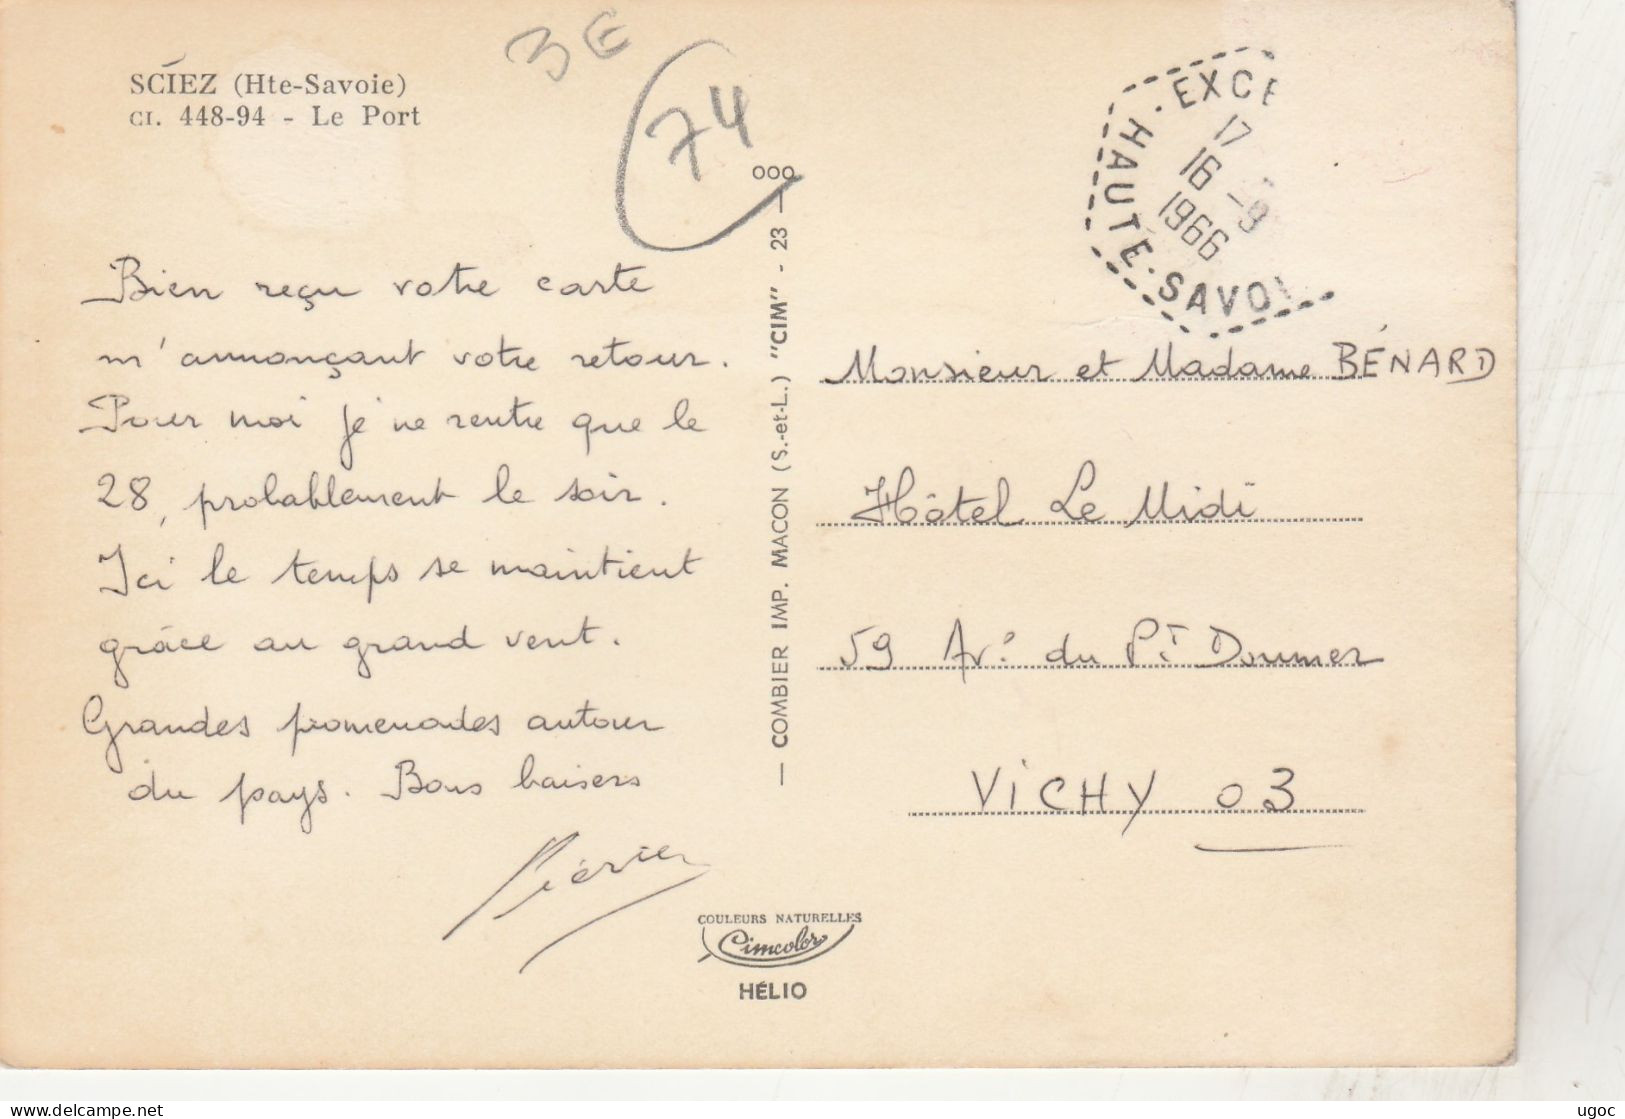 SCIEZ (Hte-Savoie)
CI. 448-94 - Le Port
3E
74
EXCE
17
16 -9
1966
HAUTE-SAVOI
Bien reçu votre carte
m'annonçant votre retour.
Pour moi je ne rentre que le
28, probablement le soir.
Ici le temps se maintient
grâce au grand vent.
Grandes promenades autour
du pays. Bons baisers
Monsieur et Madame BÉNARD
Hôtel Le Midi
59 Av. du Pt Doumer
VICHY 03
— COMBIER IMP. MACON (S.-et-L.) "CIM" - 23 — ooo
COULEURS NATURELLES
Cimcolor
HÉLIO
delcampe.net
ugoc